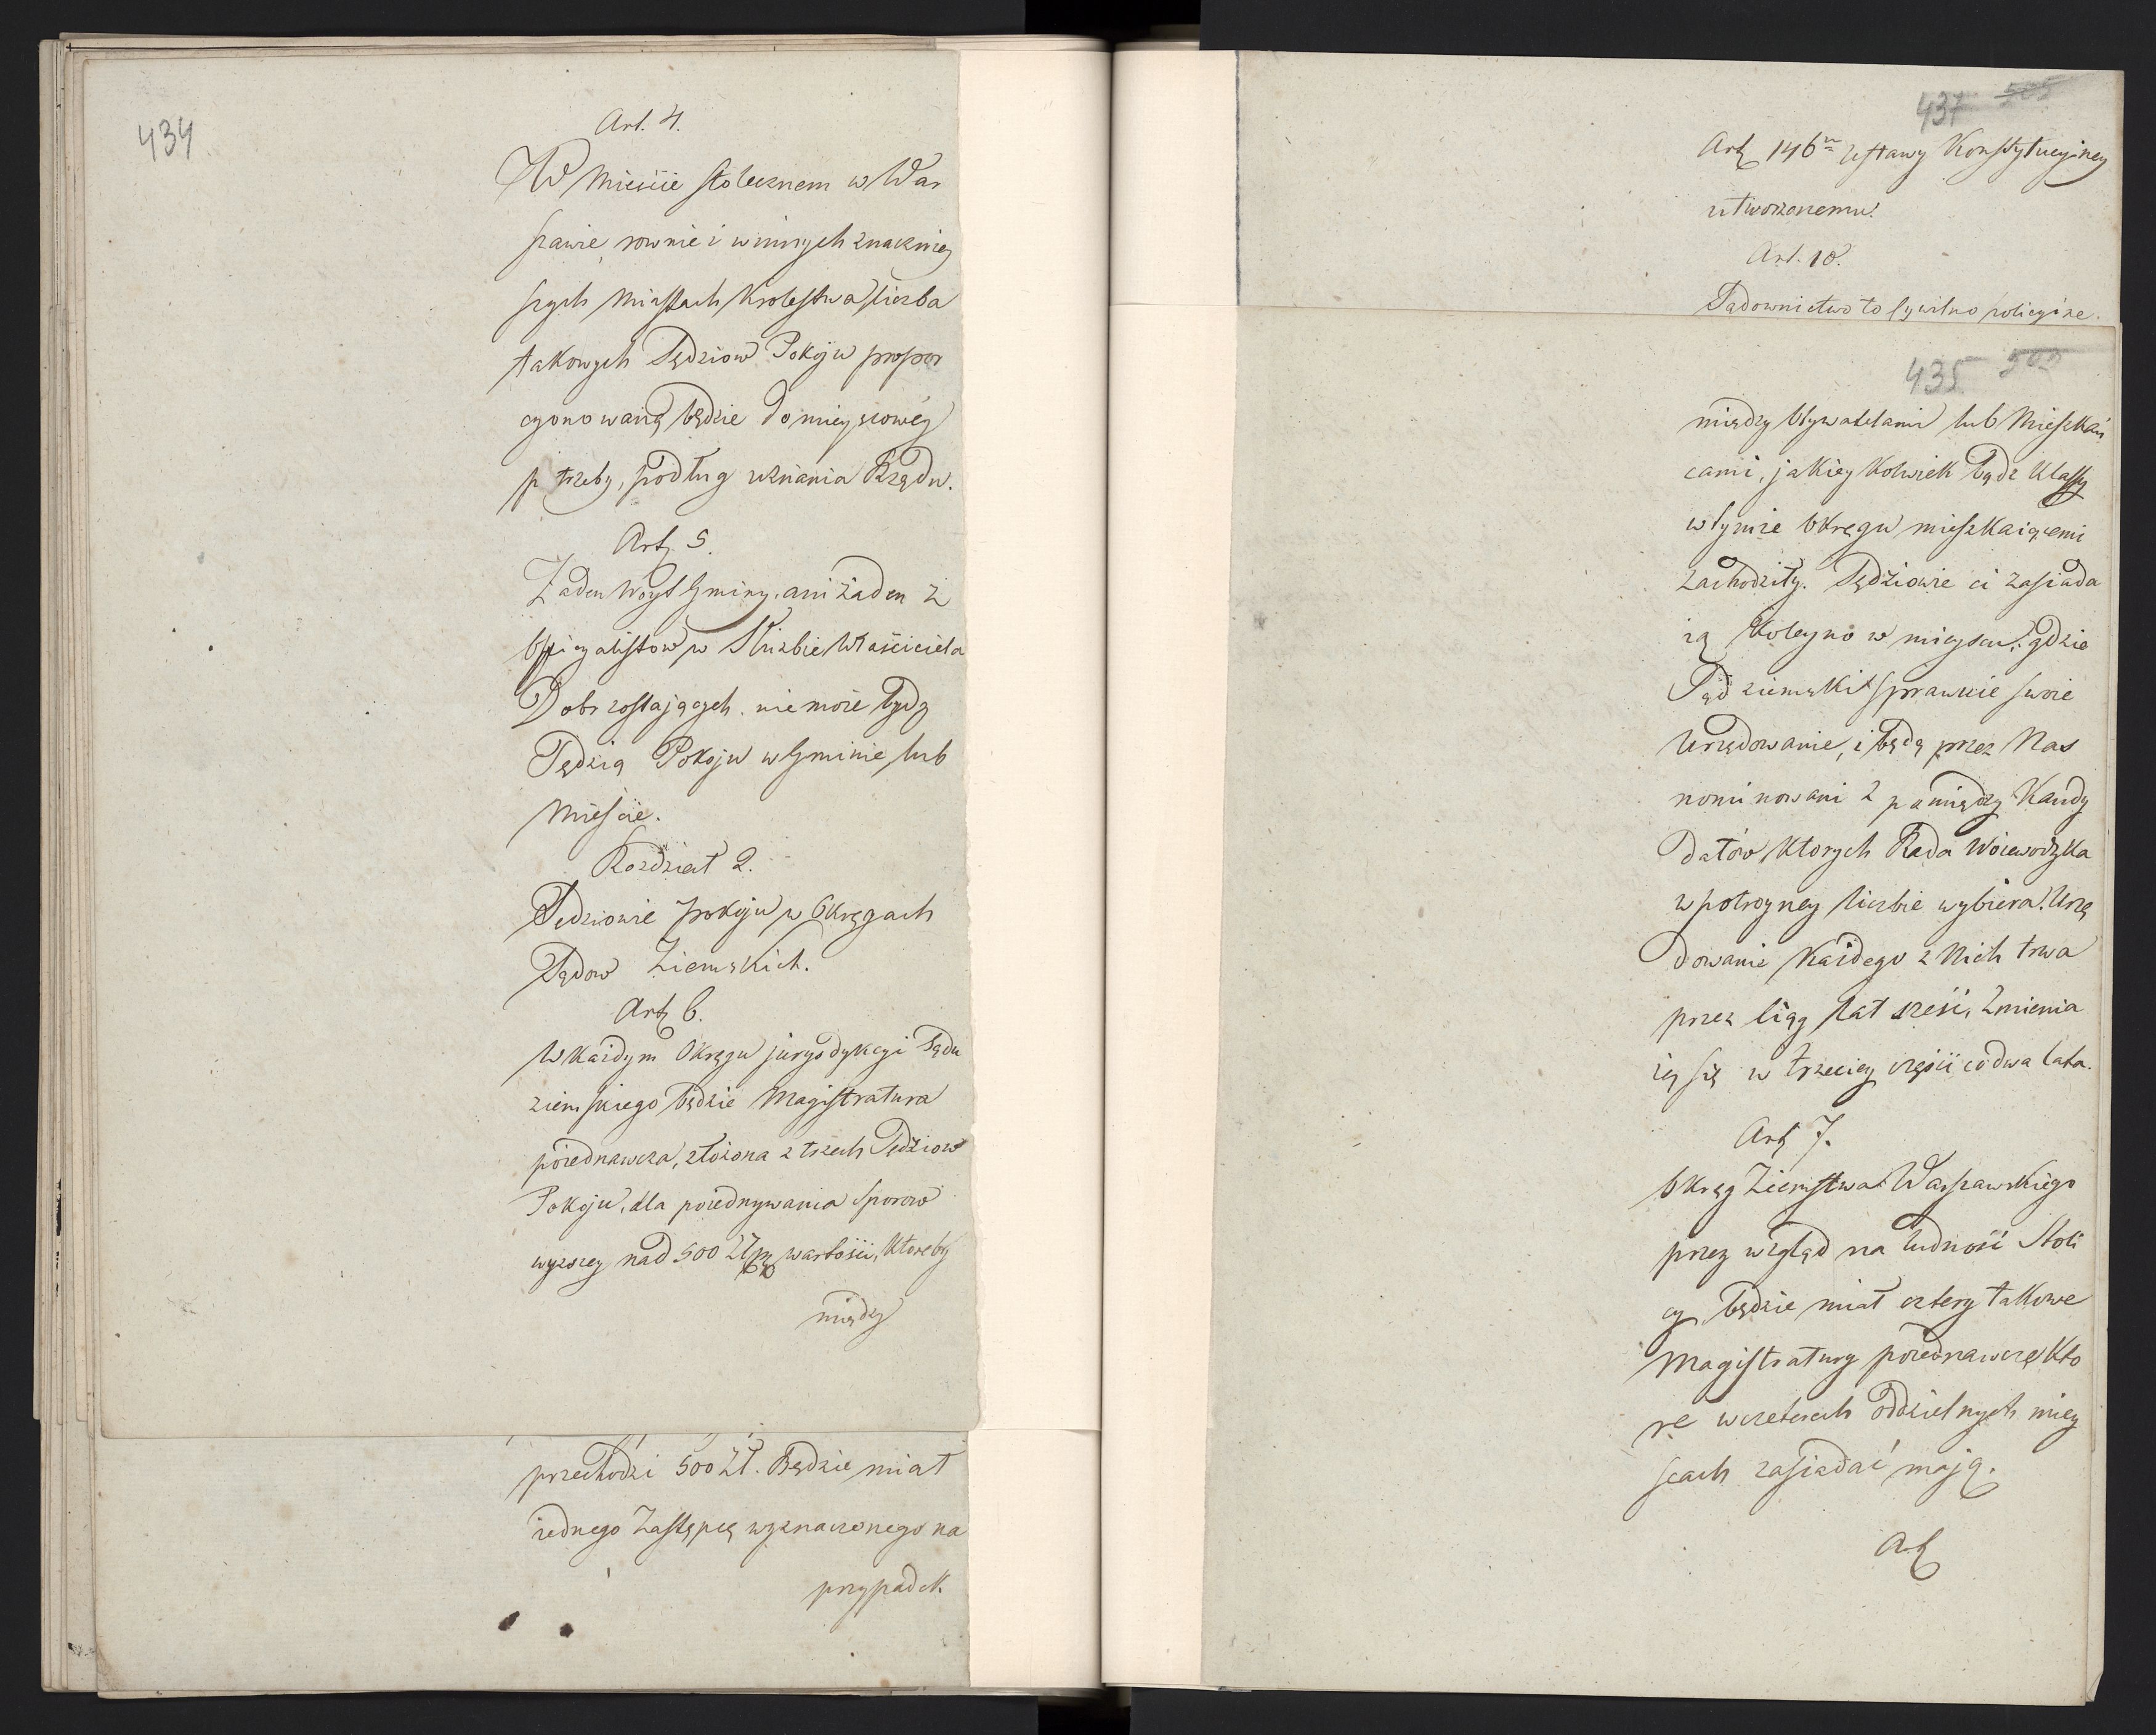 434
Art. 4.
W Mieście stołecznem w War
szawie, rownie i w innych znaczniey
szych Miastach Krolestwa liczba
takowych Sędziow Pokoju propor
cyonowaną będzie do mieyscowéy
p trzeby, podług uznania Rządu.
Art. 5.
Żaden Woyt Gminy, ani żaden z
Officyalistow w Służbie Właściciela
Dobr zostających nie może bydz
Sędzią Pokoju w Gminie lub
Mieście.
Rozdział 2.
Sędziowie pokoju w Okręgach
Sądow Ziemskich.
Art. 6.
W każdym Okręgu jurysdykcyi Sądu
ziemskiego będzie Magistratura
poiednawcza, złożona z trzech Sędziow
Pokoju, dla poiednywania sporow
wyższey nad 500 Złp. wartości, ktoreby
między
przechodzi 500 Zł. Będzie miał
iednego Zastępcę wyznaczonego na
przypadek
437
Art. 146 Ustawy Konstytucyiney
utworzonemu.
Art. 10.
Sadownictwo to Cywilno policyine.
435 503
między Obywatelami lub Mieszkań
cami, jakiey kolwiek bądz klassy
w tymże Okręgu mieszkaiącemi
zachodziły. Sędziowie ci zasiada
ią koleyno w mieyscu, gdzie
Sąd ziemski sprawuie swoie
Urzędowanie, i będą przez Nas
nominowani z pomiędzy Kandy
datów ktorych Rada Woiewodzka
w potroyney liczbie wybiera. Urzę
dowanie każdego z Nich trwa
przez ciąg lat sześć, Zmienia
ią się w trzeciey części co dwa lata.
Art. 7.
Okrąg Ziemstwa Warszawskiego
przez wzgląd na ludność Stoli
cy będzie miał cztery takowe
Magistratury poiednawcze kto
re w czterech oddzielnych miey
scach zasiadać mają.
Art